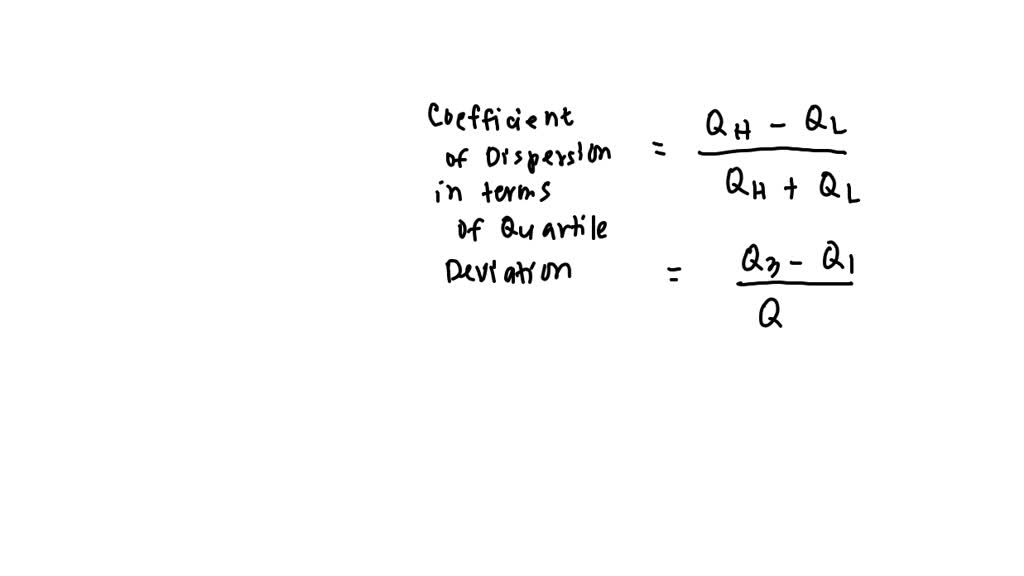 Coefficient
of Dispersion
in terms
of Quartile
Deviation
= QH - QL
QH + QL
= Q3 - Q1
Q